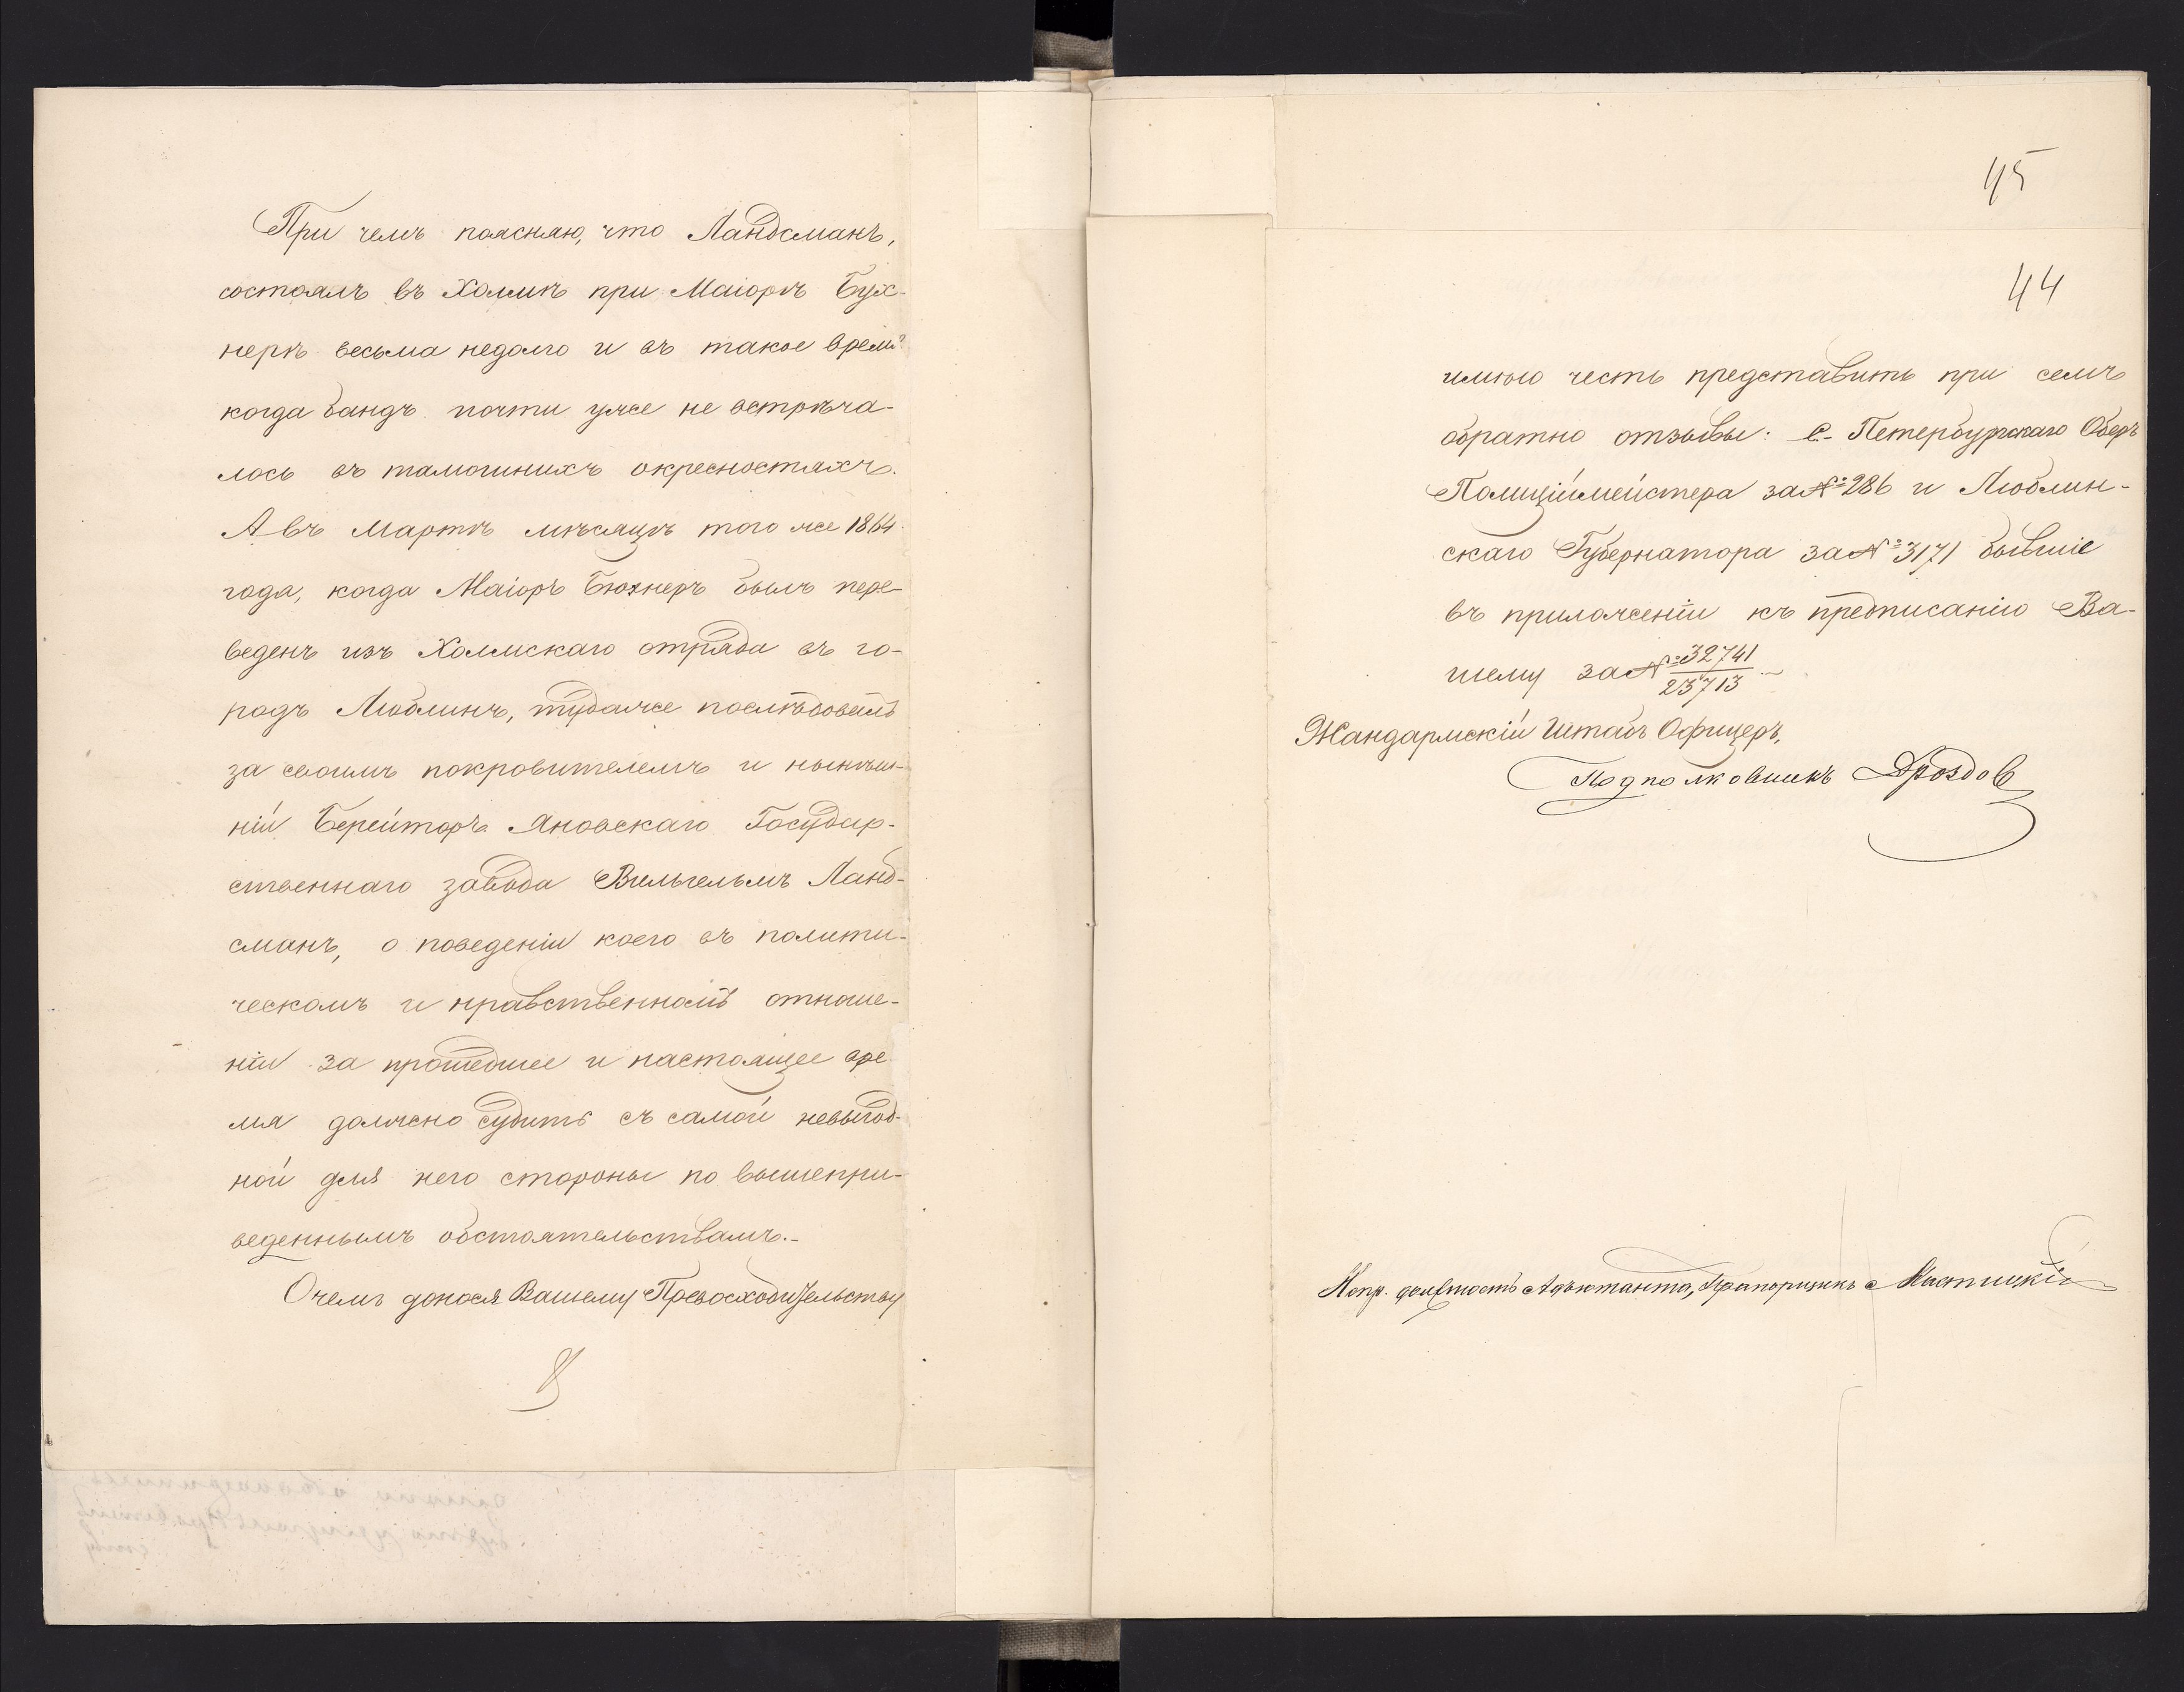 При чемъ поясняю, что Ландсманъ,
состоялъ въ Холмѣ при Маіорѣ Бух-
нерѣ весьма недолго и въ такое время
когда бандъ почти уже не встрѣча-
лось въ тамошнихъ окресностяхъ.
А въ Мартѣ мѣсяцѣ того же 1864
года, когда Маіоръ Бюхнеръ былъ пере-
веденъ изъ Холмскаго отряда въ го-
родъ Люблинъ, туда же послѣдовалъ
за своимъ покровителемъ и нынѣш-
ній Берейторъ Яновскаго Государ-
ственнаго завода Вильгельмъ Ланд-
сманъ, о поведеніи коего въ полити-
ческомъ и нравственномъ отноше-
ніи за прошедшее и настоящее вре
мя должно судить съ самой невыгод-
ной для него стороны по вышепри-
веденнымъ обстоятельствамъ.-
О чемъ донося Вашему Превосходительству
45
44
имѣю честь представить при семъ
обратно отзывы: С.- Петербургскаго Оберъ
Полиціймейстера за № 286 и Люблин-
скаго Губернатора за № 3171 бывшіе
въ приложеніи къ предписанію Ва-
шему за № 32741/23713
Жандармскій Штабъ Офицеръ,
Подполковникъ Дроздовъ
Испр. должность Адъютанта, Прапорщикъ